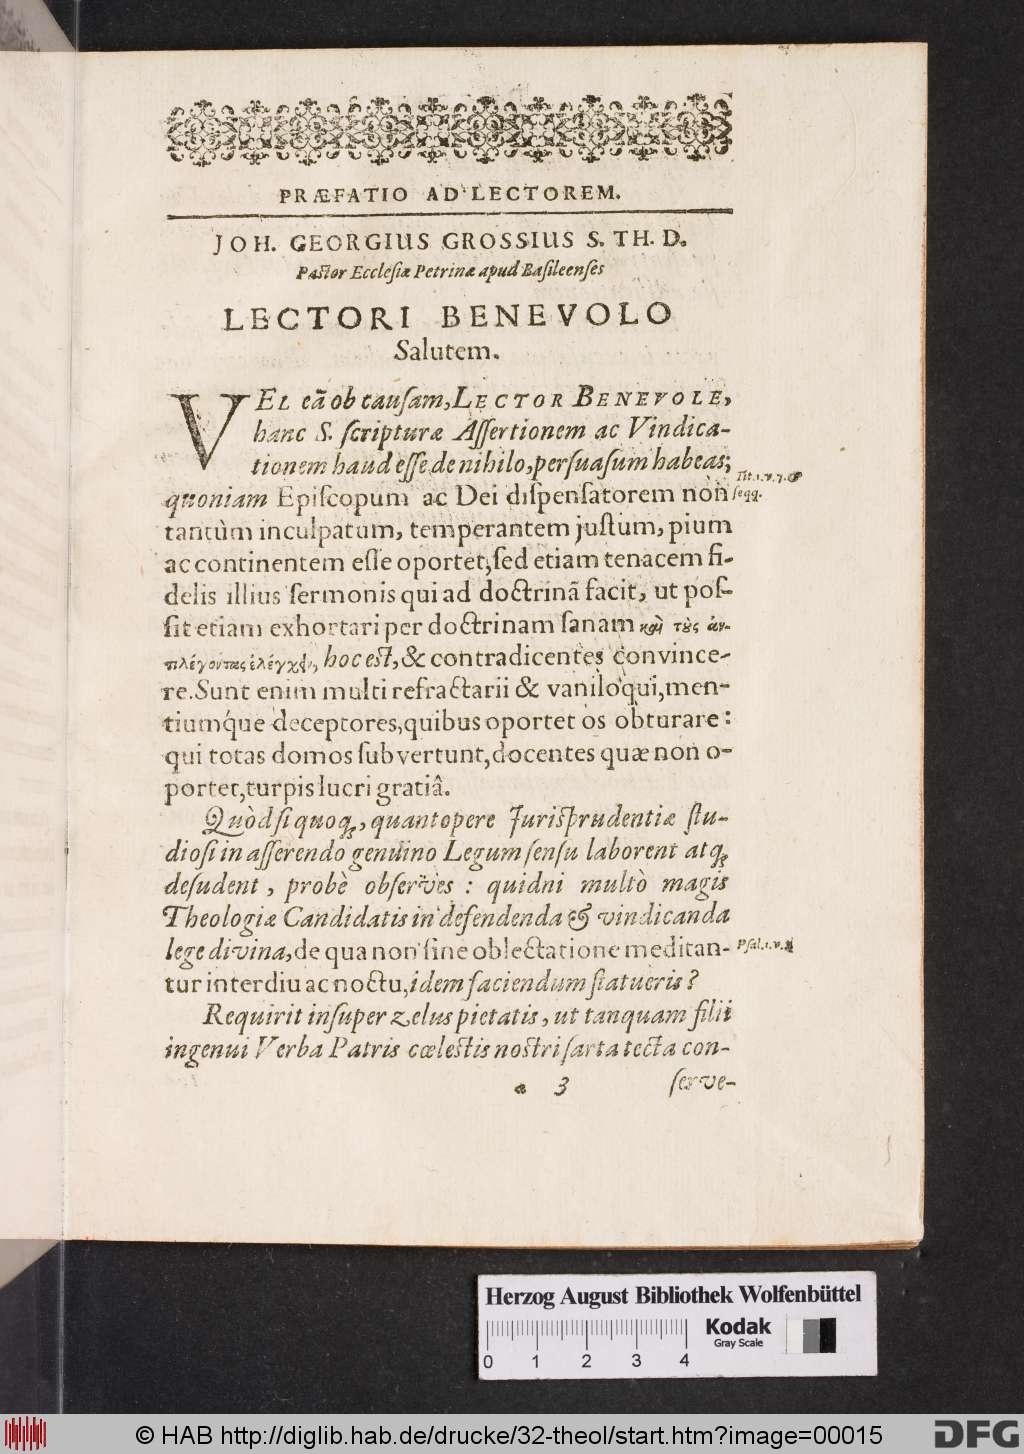 PRÆFATIO AD LECTOREM.
JOH. GEORGIUS GROSSIUS S. TH. D.
Pastor Ecclesiæ Petrinæ apud Basileenses
LECTORI BENEVOLO
Salutem.
VEL eã ob causam, LECTOR BENEVOLE,
hanc S. scripturæ Assertionem ac Vindica-
tionem haud esse de nihilo, persuasum habeas;
quoniam Episcopum ac Dei dispensatorem nòn
Tit. 1. v. 7. &
seqq.
tantùm inculpatum, temperantem justum, pium
ac continentem esse oportet, sed etiam tenacem fi-
delis illius sermonis qui ad doctrinã facit, ut pos-
sit etiam exhortari per doctrinam sanam καὶ τȣ̀ς ἀν-
τιλέγοντας ἐλέγχειν, hoc est, & contradicentes convince-
re. Sunt enim multi refractarii & vaniloqui, men-
tiumq́ue deceptores, quibus oportet os obturare:
qui totas domos subvertunt, docentes quæ non o-
portet, turpis lucri gratiâ.
Quòd si quoq;, quantopere Jurisprudentiæ stu-
diosi in asserendo genuino Legum sensu laborent atq;
desudent, probè observes: quidni multò magis
Theologiæ Candidatis in defendenda & vindicanda
lege divina, de qua non sine oblectatione meditan-
Psal. 1. v.
tur interdiu ac noctu, idem faciendum statueris?
Requirit insuper zelus pietatis, ut tanquam filii
ingenui Verba Patris cœlestis nostri sarta tecta con-
a 3 serve-
Herzog August Bibliothek Wolfenbüttel
0 1 2 3 4
Kodak
Gray Scale
© HAB http://diglib.hab.de/drucke/32-theol/start.htm?image=00015
DFG